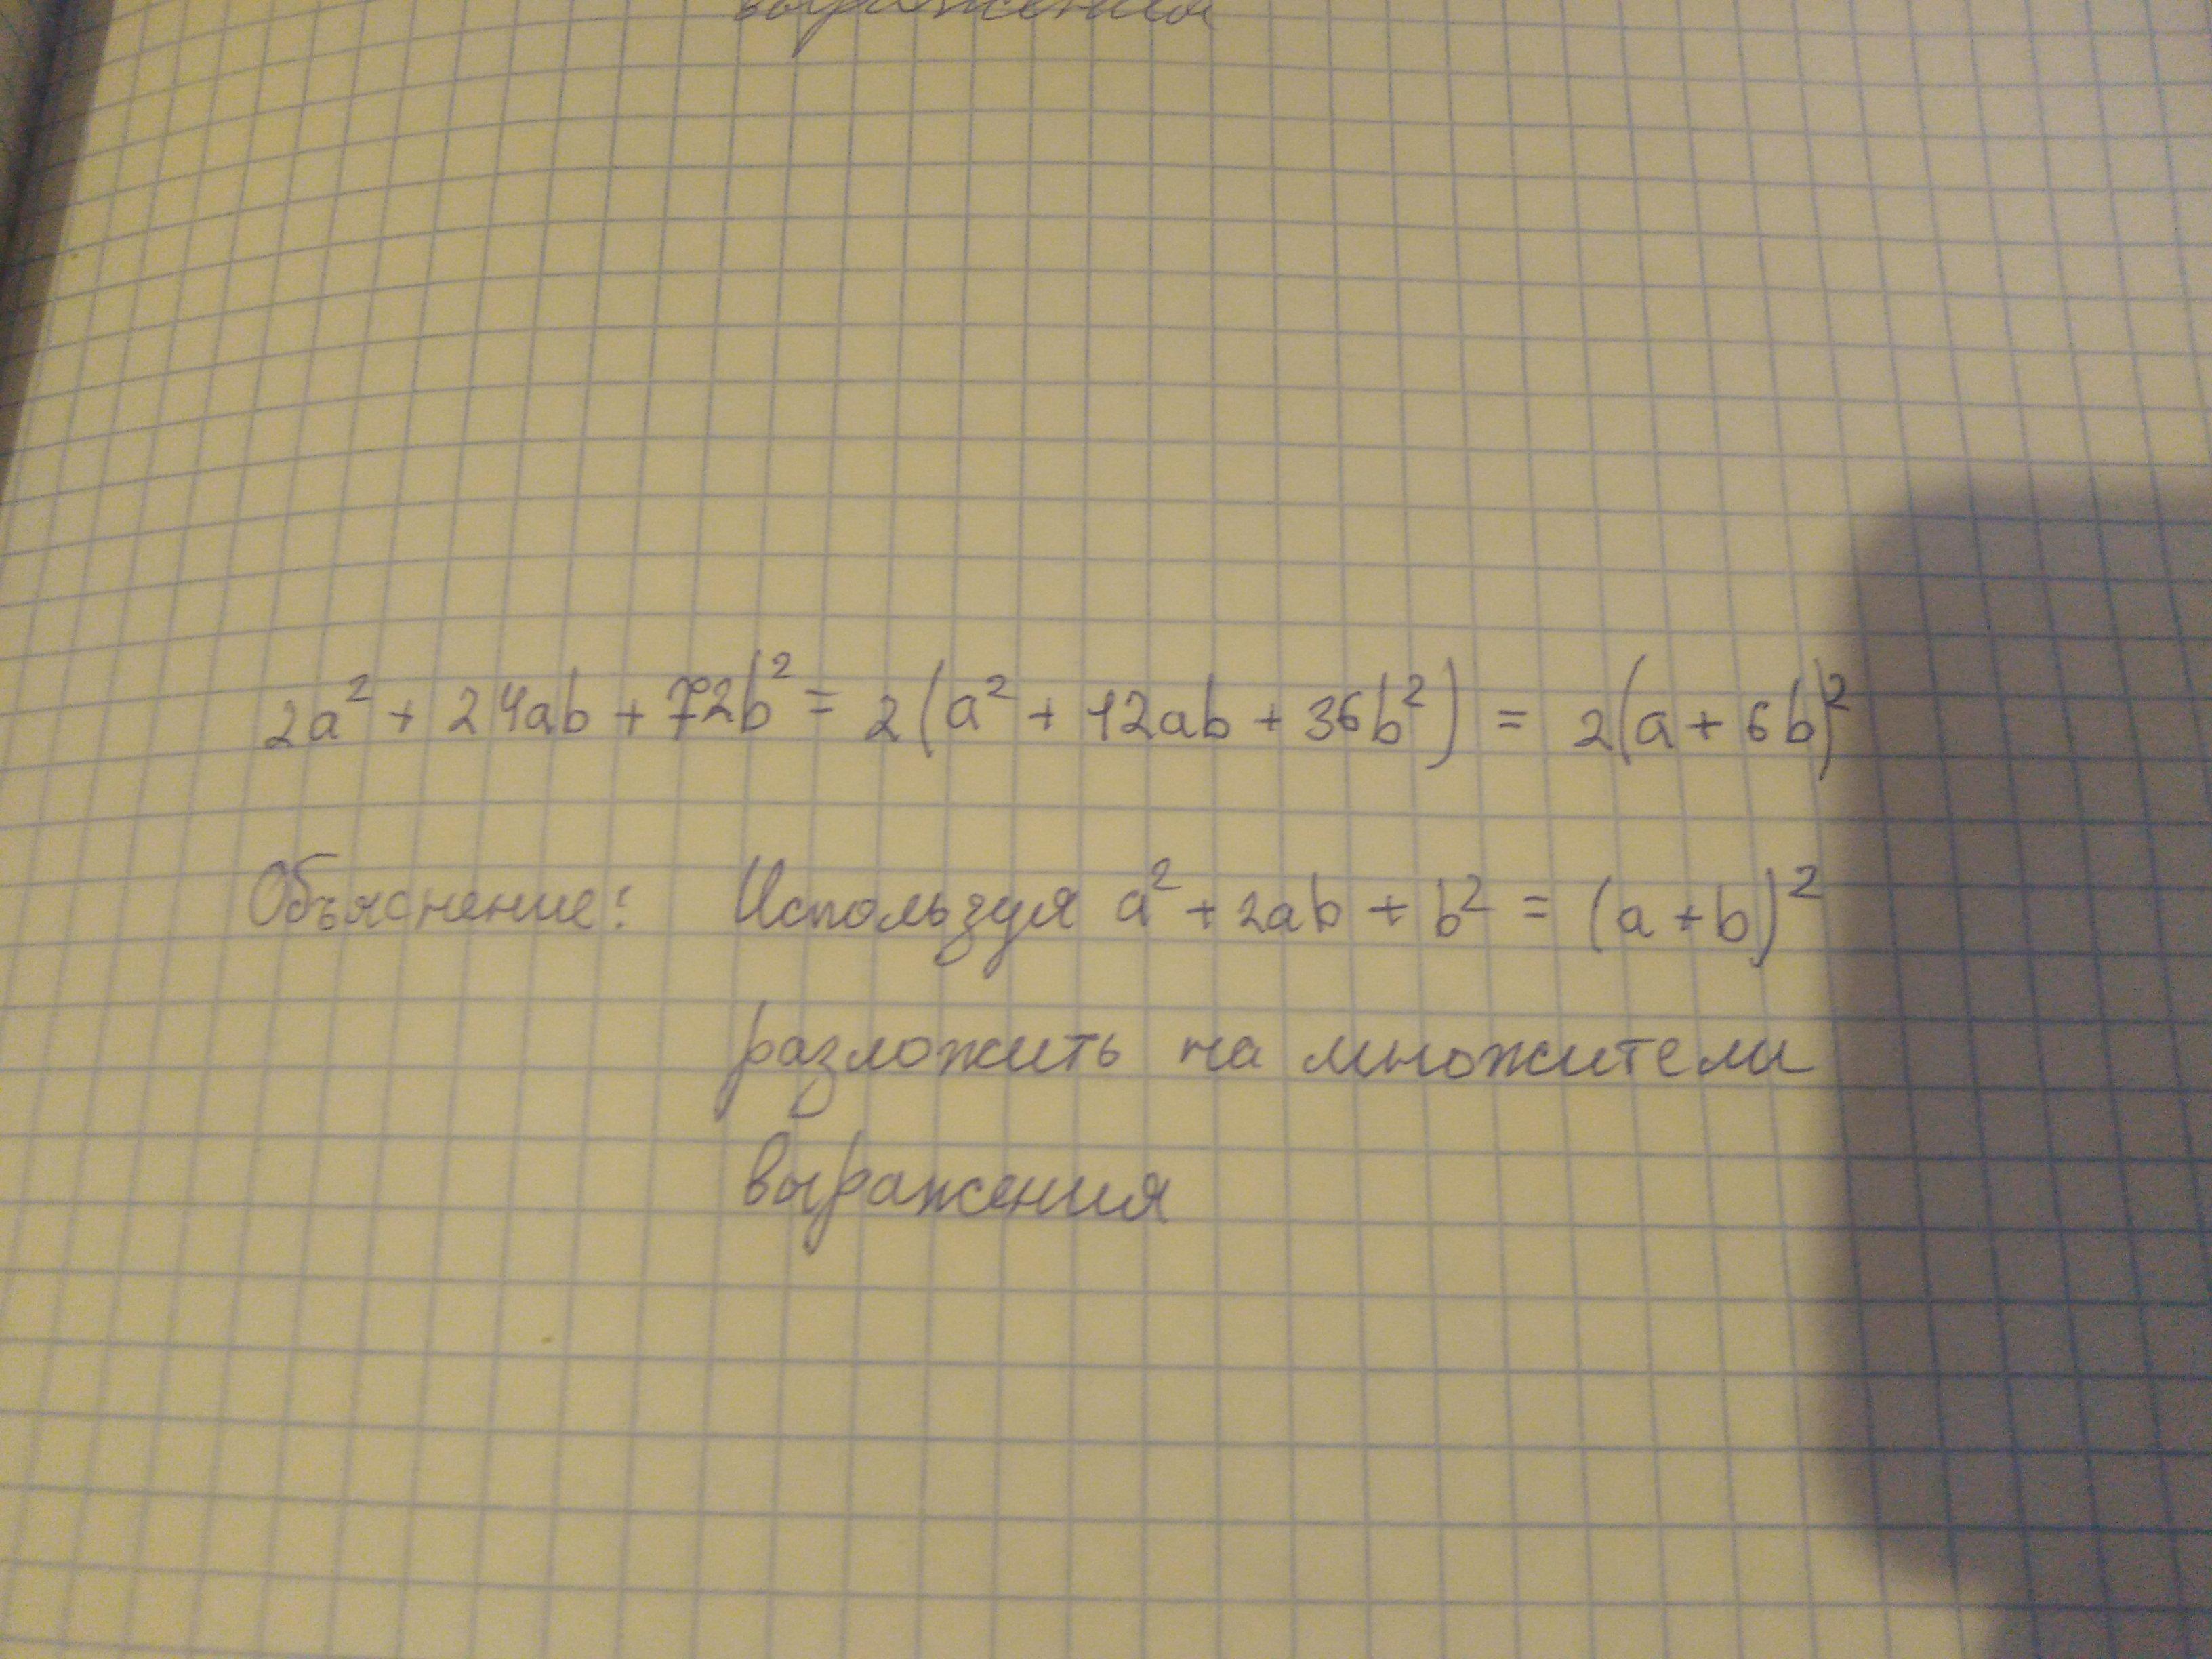 выражения
2a² + 24ab + 72b² = 2(a² + 12ab + 36b²) = 2(a + 6b)²
Объяснение: Используя a² + 2ab + b² = (a + b)²
разложить на множители
выражения